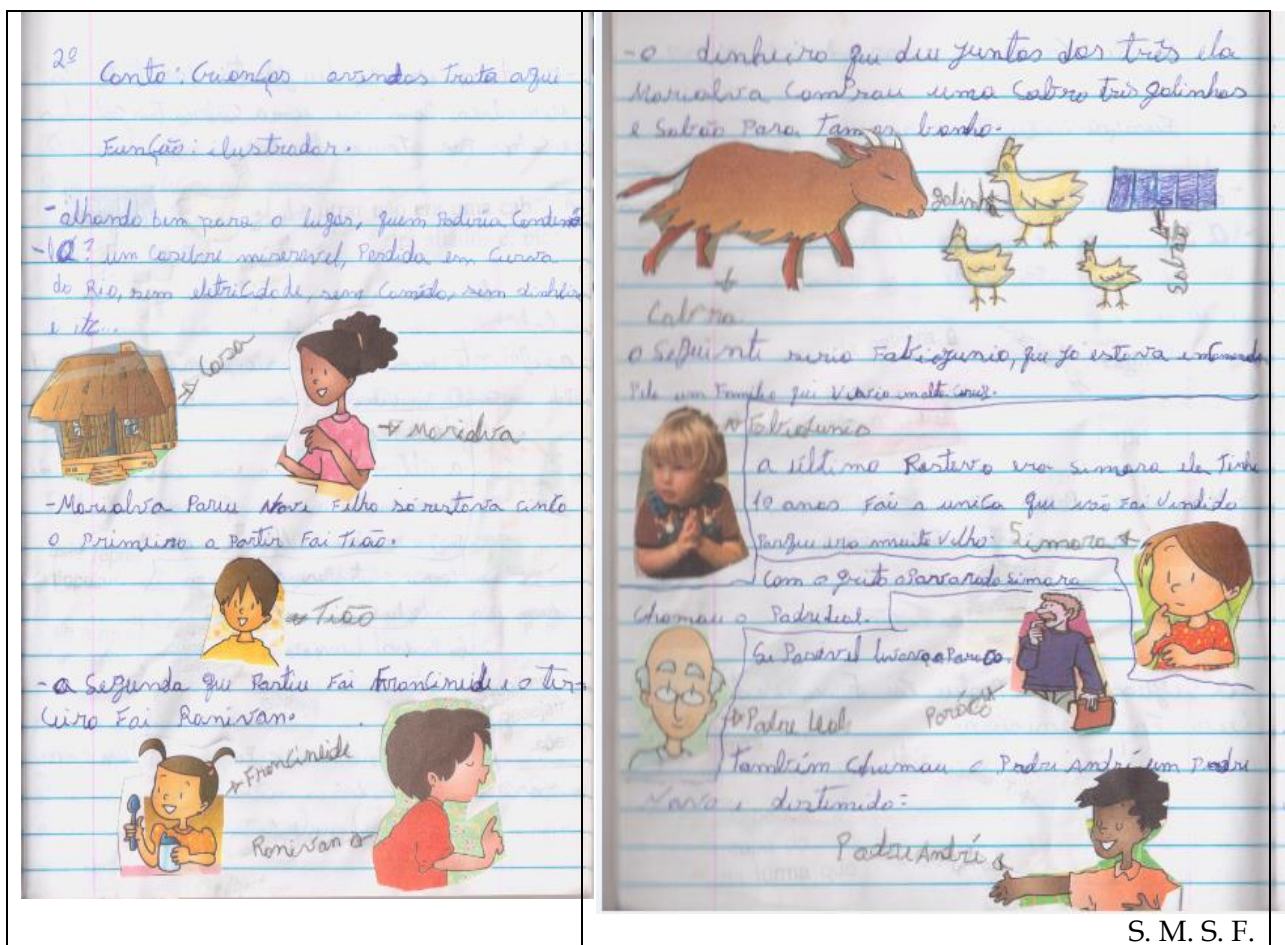 2º
Conto: Crianças avendas trata aqui
Função: ilustrador.
- olhando bem para o lugar, quem Poderia Condená
-la? um casebre miserável, Perdida em Curva
do Rio, sem eletricidade, sem Comida, sem dinheiro
e itc...
Casa
Marialva
- Marialva Pariu Nove Filho só restava cinco
o Primeiro a Partir Fai Tião.
Tião
- a Segunda que Partiu Fai Francineide e o ter-
ceiro Fai Ranivan.
Francineide
Ranivan
- o dinheiro que deu juntos dos três ela
Marialva Comprau uma Cabra três galinhas
e Sabão Para Tamar banho.
galinha
Sabão
Cabra
o Seguinte seria Fabiojunio, que já estava
Pela um Familha que
Fabiojunio
a último Restava era Simara ela Tinha
10 anos Fai a unica que não Fai Vendida
Parque era muinto Velha. Simara
Com o grito Simara
Chamau o Padre Leal.
Padre Leal
Parãco
também Chamau o Padre André um Padre
Navo e destimido:
Padre André
S. M. S. F.